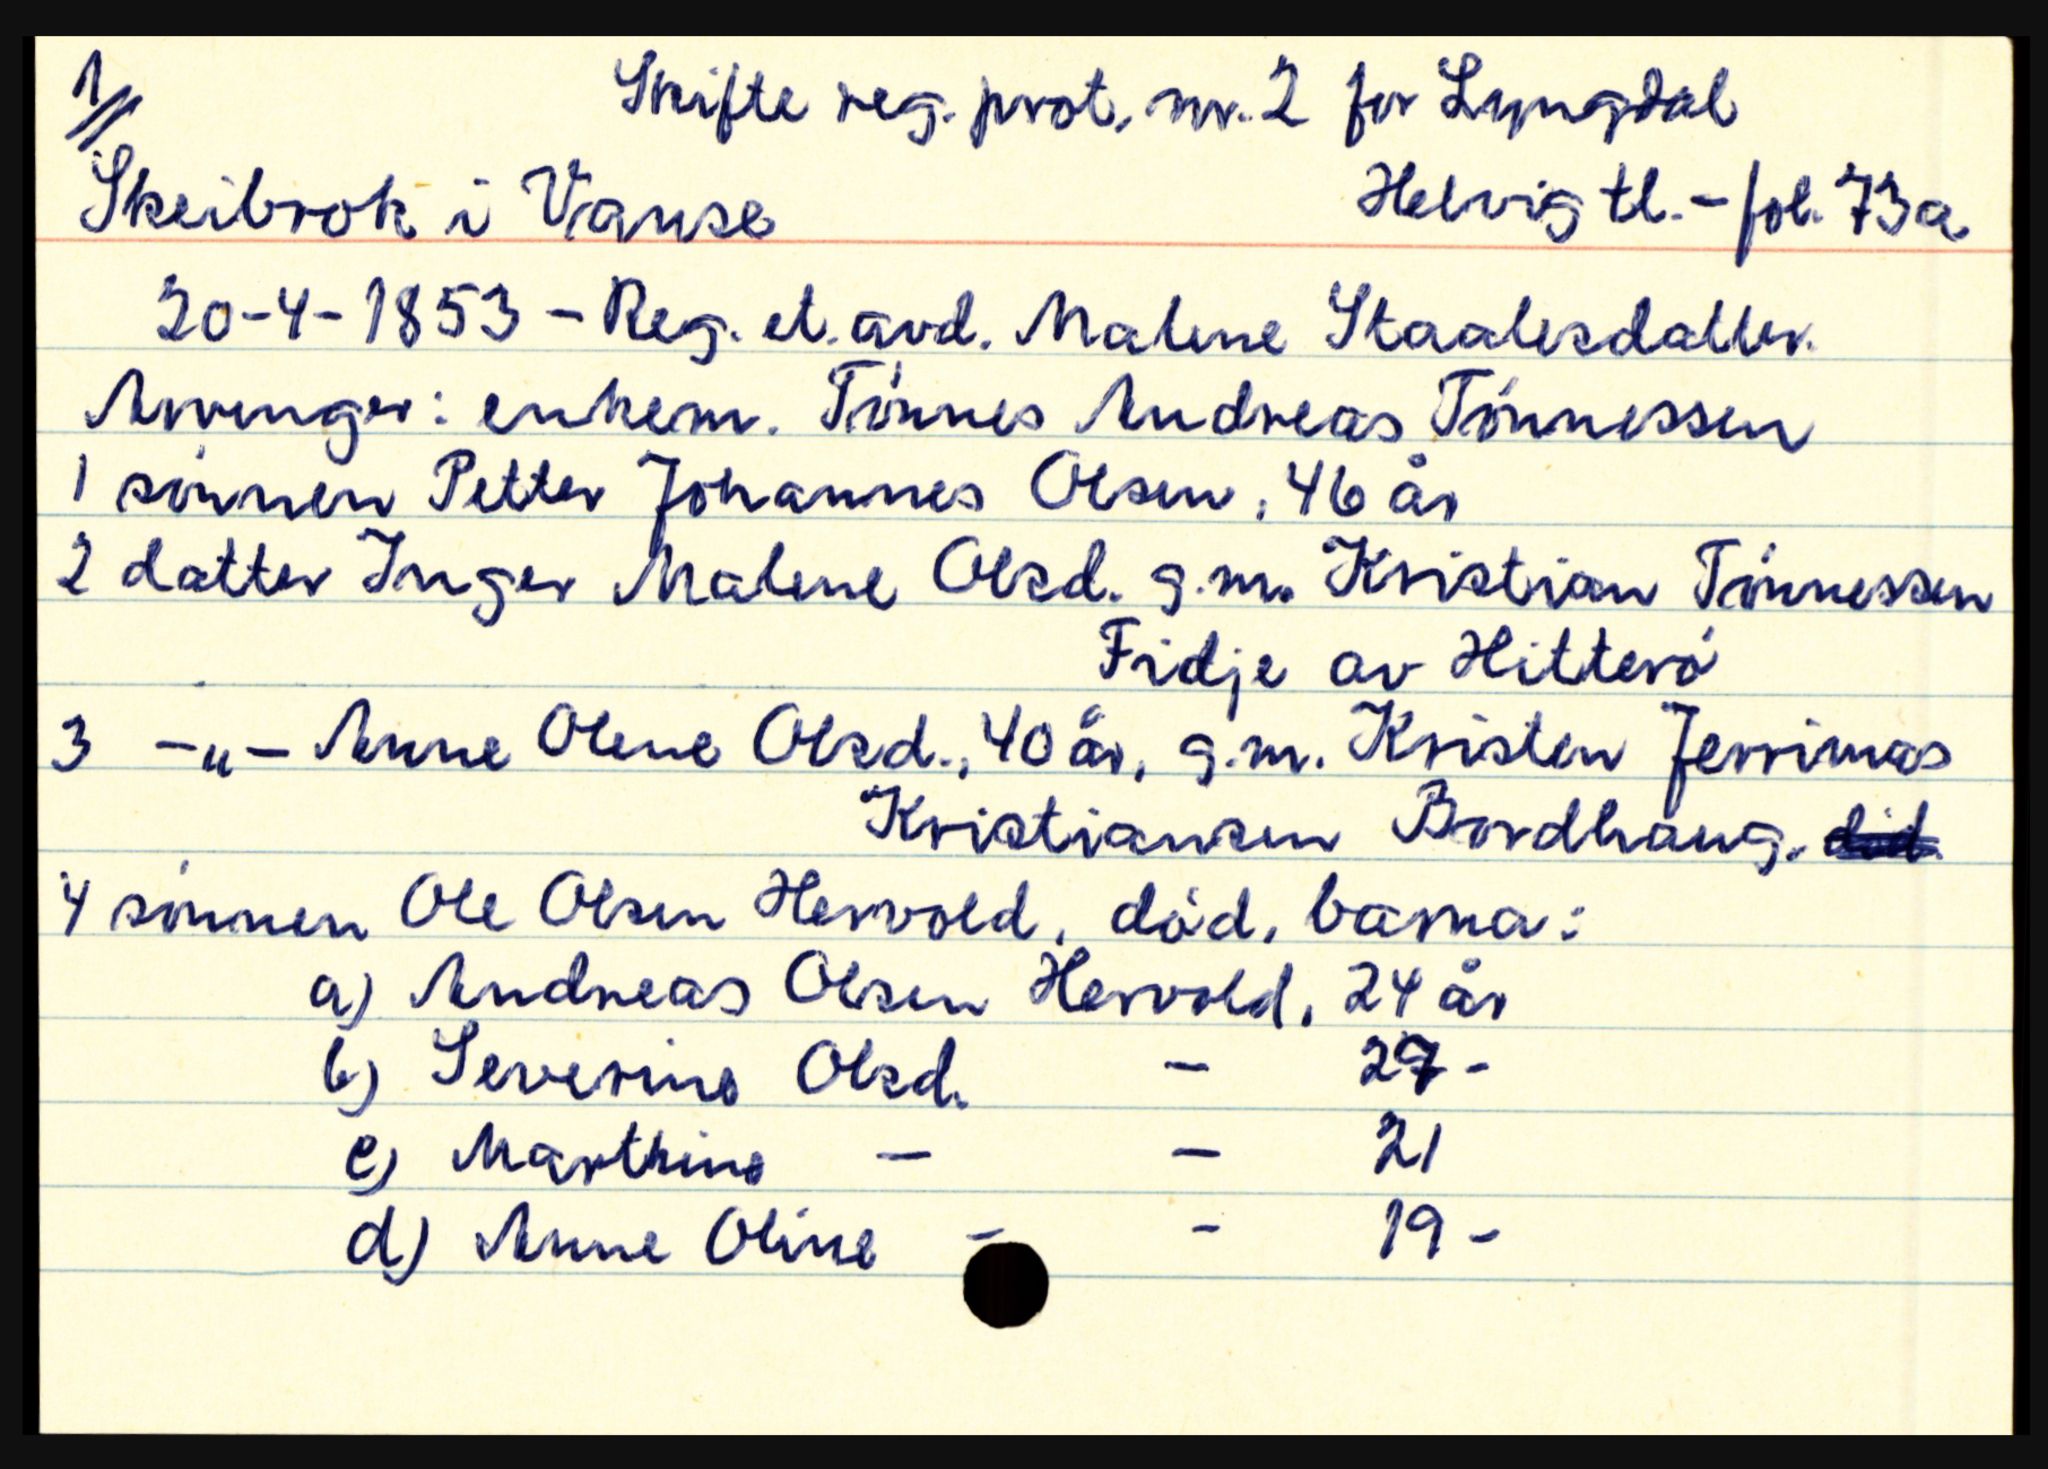 1//
Skifte reg. prot. nr. 2 for Lyngdal
Skeibrok i Vanse Helvig tl. - fol. 73a
20-4-1853 - Reg. et. avd. Malene Staalesdatter.
Arvinger: enkem. Tønnes Andreas Tønnessen
1 sønnen Petter Johannes Olsen, 46 år
2 datter Inger Malene Olsd. g.m. Kristian Tønnessen
Fidje av Hitterø
3 -"- Anne Olene Olsd., 40 år, g.m. Kristen Jerrimas
Kristiansen Bordhaug.
4 sønnen Ole Olsen Hervold, død, barna:
a) Andreas Olsen Hervold, 24 år
b) Severine Olsd. - 27 -
c) Marthine - - 21
d) Anne Oline - - 19 -